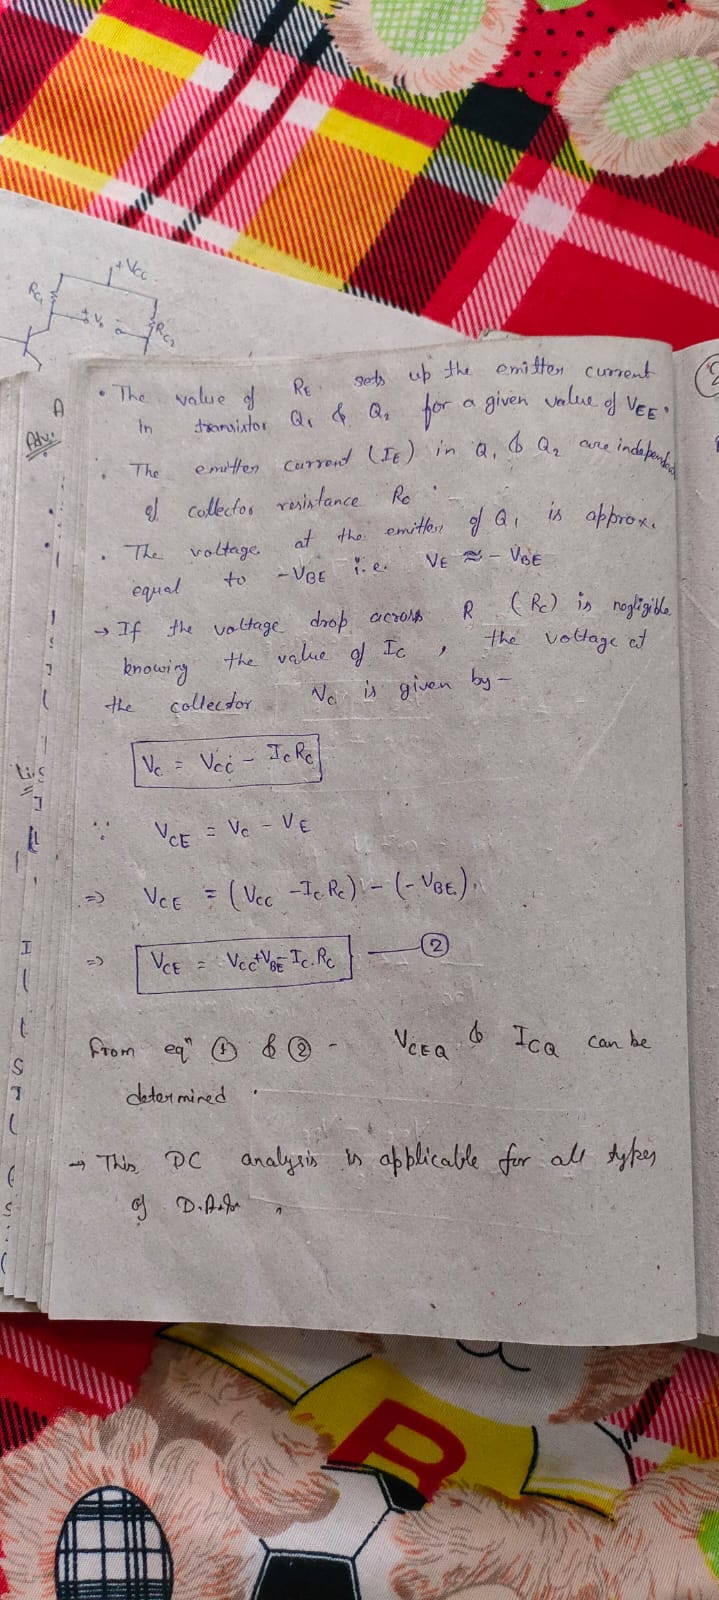 +Vcc
Rc1
+ Vo -
Rc2
A
Adv:
• The value of RE sets up the emitter current
in transistor Q1 & Q2 for a given value of VEE.
• The emitter current (IE) in Q1 & Q2 are independent
of collector resistance Rc.
• The voltage at the emitter of Q1 is approx.
equal to -VBE i.e. VE ≈ - VBE
→ If the voltage drop across R (Rc) is negligible
knowing the value of Ic, the voltage at
the collector Vc is given by -
Vc = Vcc - IcRc
∵ VCE = Vc - VE
=> VCE = (Vcc - IcRc) - (-VBE).
=> VCE = Vcc+VBE- Ic.Rc — ②
From eqn ① & ② - VCEQ & ICQ can be
determined.
→ This DC analysis is applicable for all types
of
B